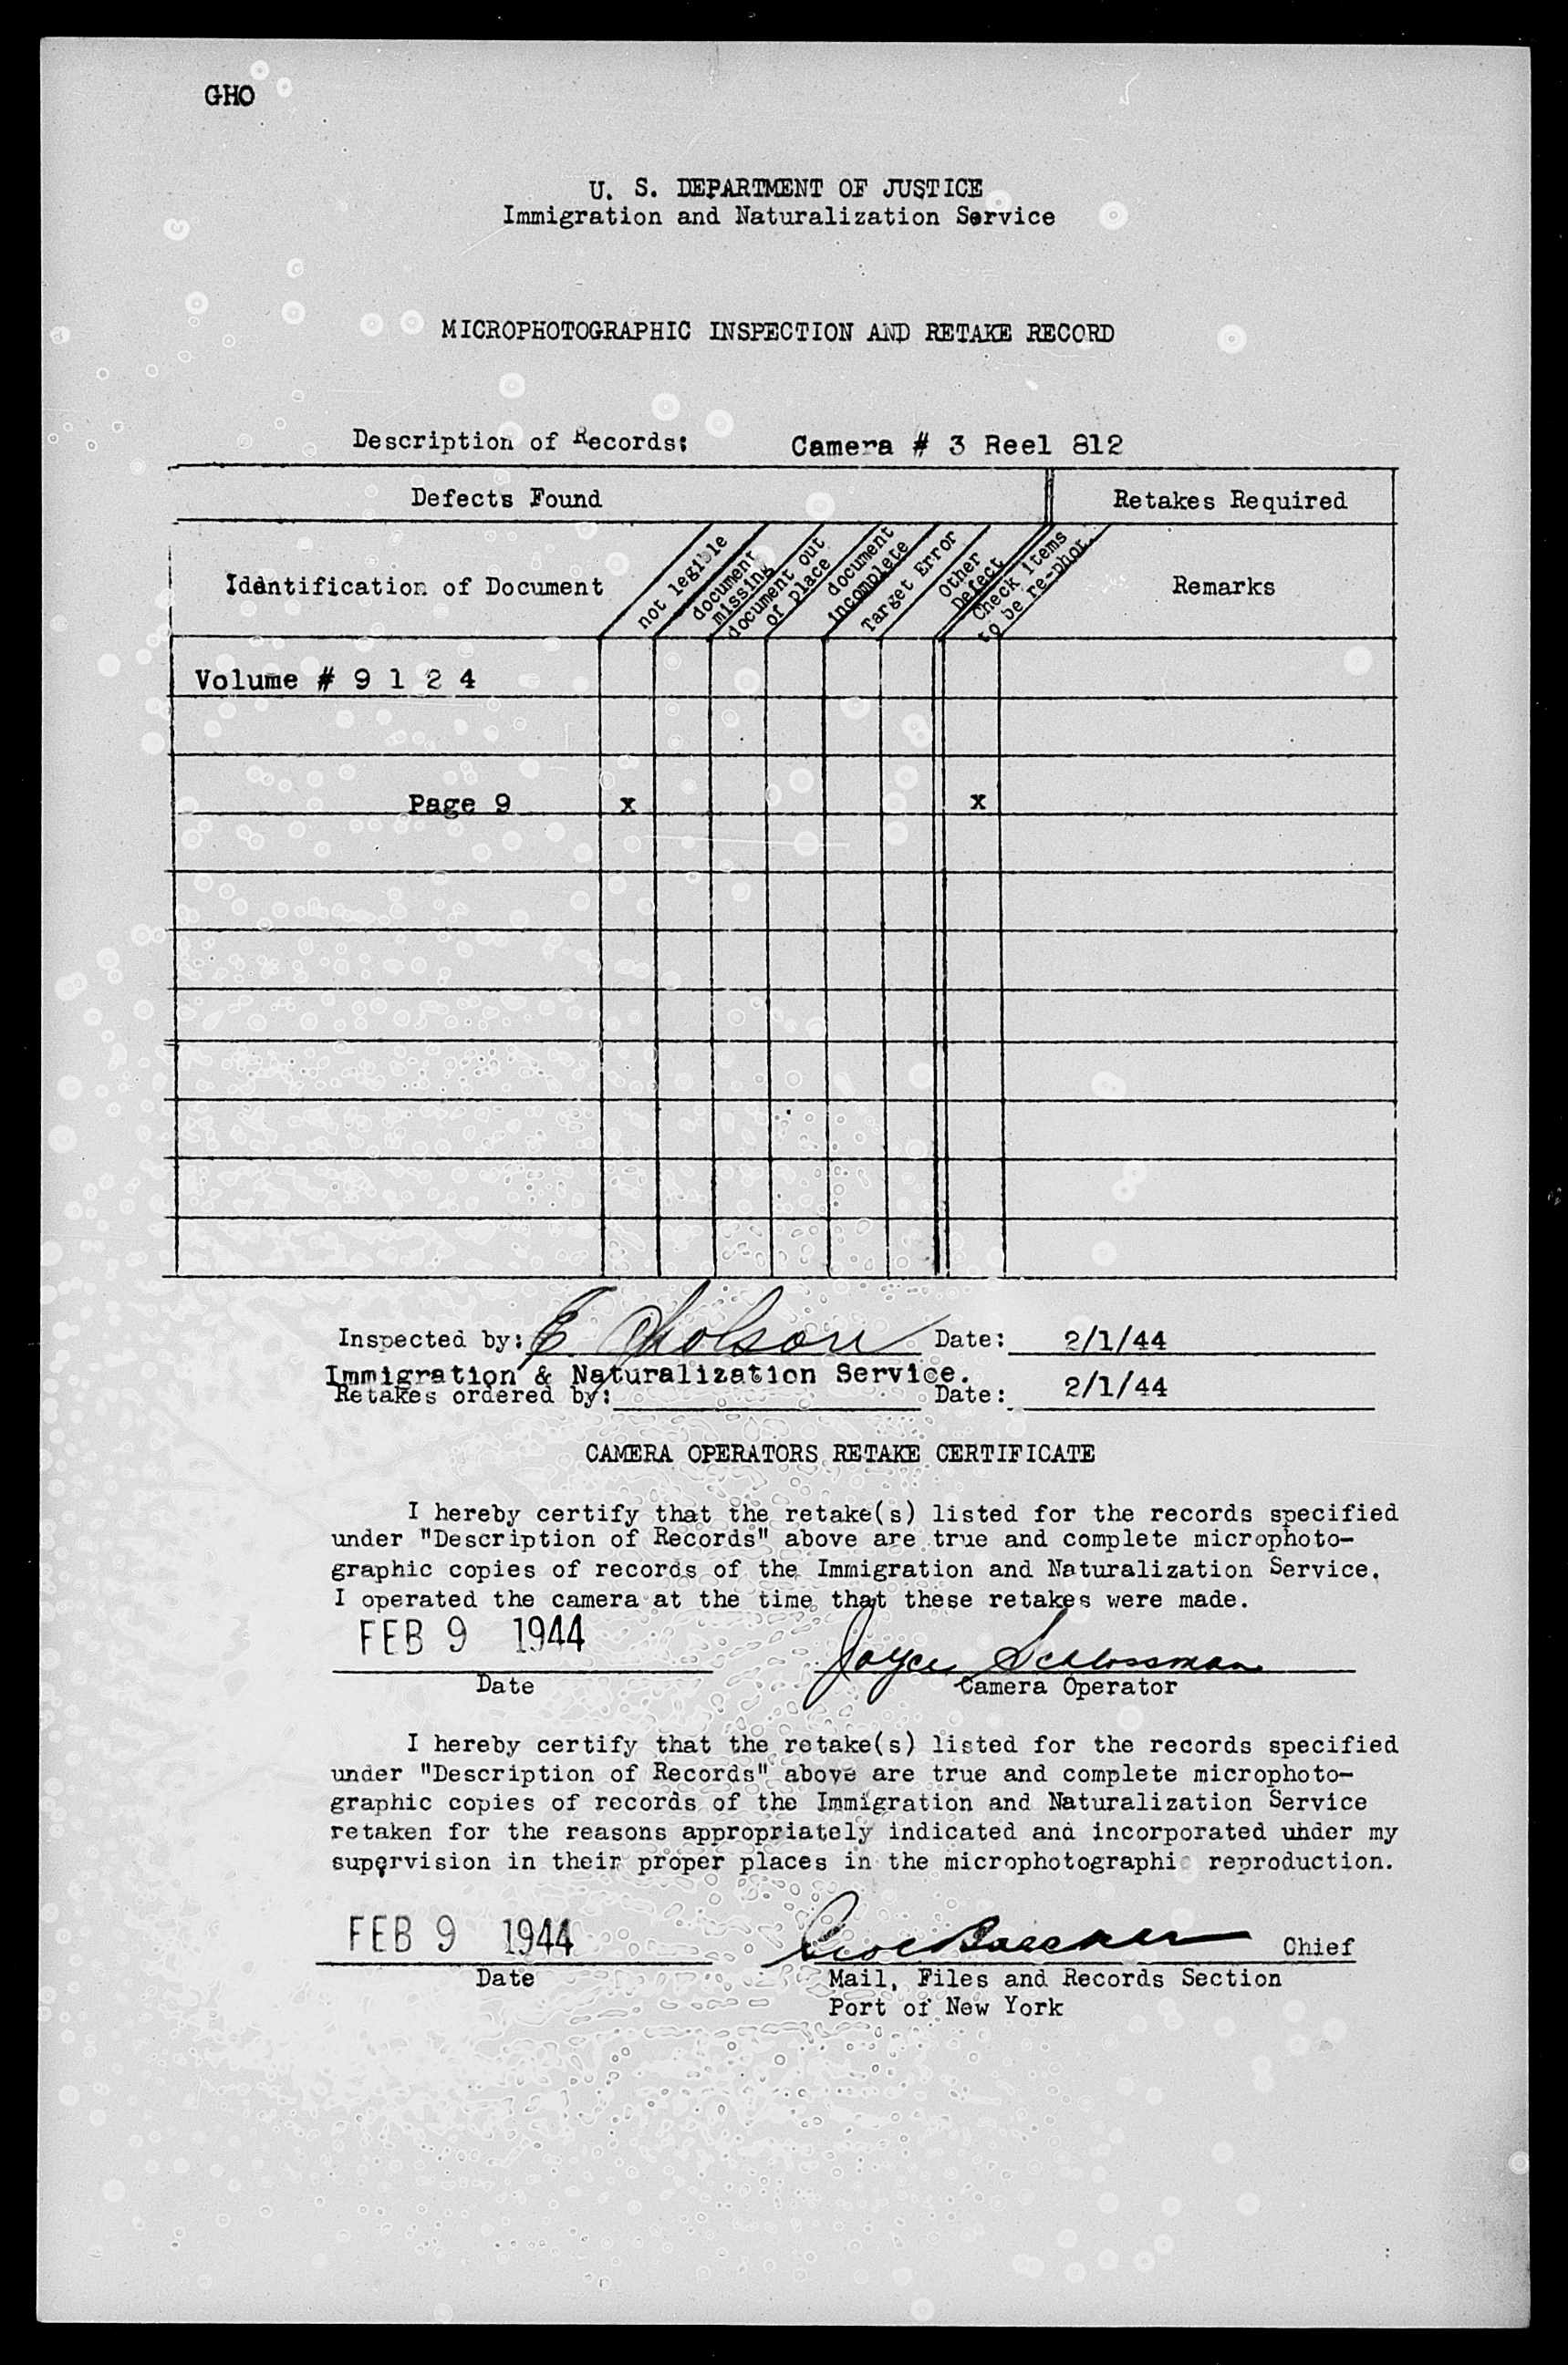 GHO
U. S. DEPARTMENT OF JUSTICE
Immigration and Naturalization Service
MICROPHOTOGRAPHIC INSPECTION AND RETAKE RECORD
Description of Records: Camera # 3 Reel 812
Defects Found Retakes Required
Identification of Document
not legible
document
missing
document out
of place
document
incomplete
Target Error
Other
Defect
Check items
to be re-phot.
Remarks
Volume # 9 1 2 4
Page 9 x x
Inspected by: E. Date: 2/1/44
Immigration & Naturalization Service.
Retakes ordered by: Date: 2/1/44
CAMERA OPERATORS RETAKE CERTIFICATE
I hereby certify that the retake(s) listed for the records specified
under "Description of Records" above are true and complete microphoto-
graphic copies of records of the Immigration and Naturalization Service.
I operated the camera at the time that these retakes were made.
FEB 9 1944 Joyce Schlossman
Date Camera Operator
I hereby certify that the retake(s) listed for the records specified
under "Description of Records" above are true and complete microphoto-
graphic copies of records of the Immigration and Naturalization Service
retaken for the reasons appropriately indicated and incorporated under my
supervision in their proper places in the microphotographic reproduction.
FEB 9 1944 Chief
Date Mail, Files and Records Section
Port of New York